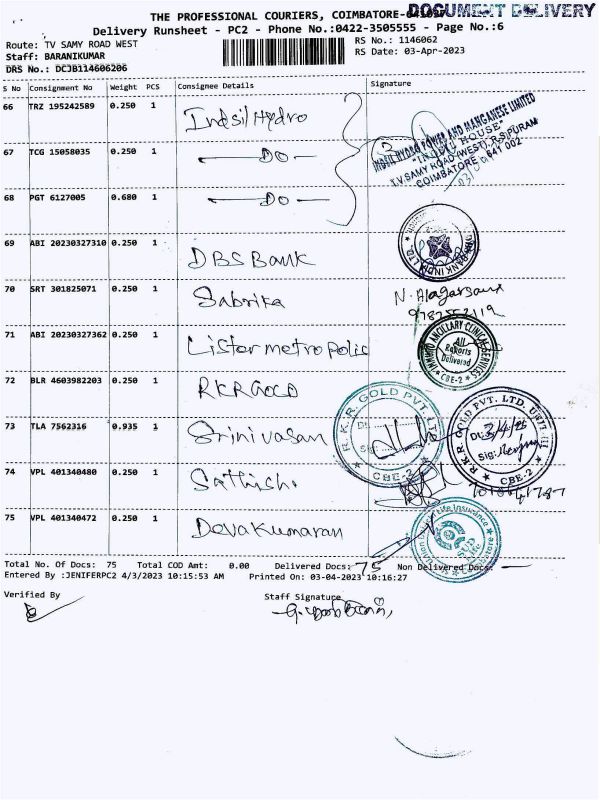 THE PROFESSIONAL COURIERS, COIMBATORE-641037
DOCUMENT DELIVERY
Delivery Runsheet - PC2 - Phone No.:0422-3505555 - Page No.:6
Route: TV SAMY ROAD WEST
RS No.: 1146062
Staff: BARANIKUMAR
RS Date: 03-Apr-2023
DRS No.: DCJB114606206
S No Consignment No Weight PCS Consignee Details Signature
66 TRZ 195242589 0.250 1 Indsil Hydro
INDSIL HYDRO POWER AND MANGANESE LIMITED
"INDSIL HOUSE"
T V SAMY ROAD (WEST), R.S. PURAM
COIMBATORE 641 002
67 TCG 15058035 0.250 1 DO
68 PGT 6127005 0.680 1 DO
69 ABI 20230327310 0.250 1 DBS Bank
BANK INDIA LTD.
70 SRT 301825071 0.250 1 Sabrika
N. Alagarsamy
71 ABI 20230327362 0.250 1 Listar metropolis
ANCILLARY CLINICAL SERVICES
All
Reports
Delivered
CBE-2
72 BLR 4603982203 0.250 1 RKR GOLD
R.K.R. GOLD PVT. LTD.
CBE-2
R.K.R. GOLD PVT. LTD. UNIT III
Dt: 3/4/23
Sig:
CBE-2
73 TLA 7562316 0.935 1 Srinivasan
74 VPL 401340480 0.250 1 Sathish
75 VPL 401340472 0.250 1 Devakumaran
Life Insurance
Total No. Of Docs: 75 Total COD Amt: 0.00 Delivered Docs: 75 Non Delivered Docs: -
Entered By :JENIFERPC2 4/3/2023 10:15:53 AM Printed On: 03-04-2023 10:16:27
Verified By
Staff Signature